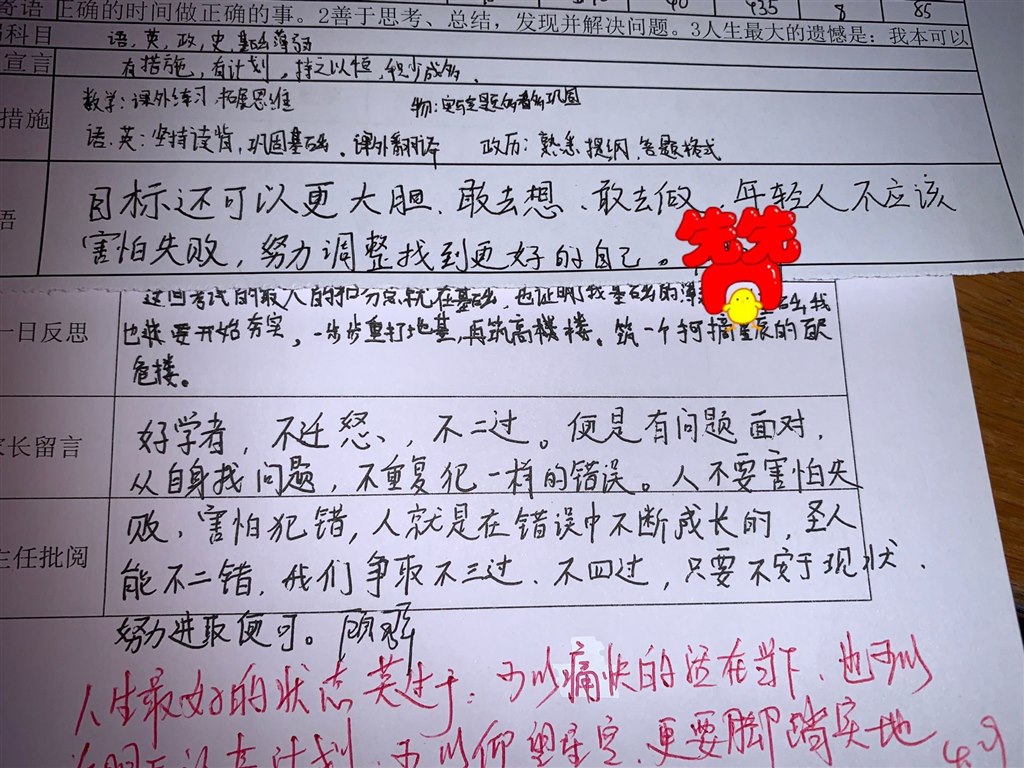 寄语 正确的时间做正确的事。2善于思考、总结，发现并解决问题。3人生最大的遗憾是：我本可以
40 435 8 85
科目 语、英、政、史、基础薄弱
宣言 有措施，有计划，持之以恒，积少成多。
措施 数学：课外练习，拓展思维 物：
语、英：坚持读背，巩固基础、课外翻译 政历：熟悉提纲，答题格式
语 目标还可以更大胆、敢去想、敢去做、年轻人不应该
害怕失败，努力调整找到更好的自己。
先先
这回考试的最大的扣分点就在基础，也证明我基础的薄
一日反思 也我要开始夯实，一步步重打地基，再筑高楼。筑一个可摘星辰的百尺
危楼。
家长留言 好学者，不迁怒、，不二过。便是有问题面对，
从自身找问题，不重复犯一样的错误。人不要害怕失
主任批阅 败、害怕犯错，人就是在错误中不断成长的，圣人
能不二错，我们争取不三过、不四过，只要不安于现状、
努力进取便可。
人生最好的状态莫过于：可以痛快的活在当下、也可以
为明天认真计划，可以仰望星空、更要脚踏实地